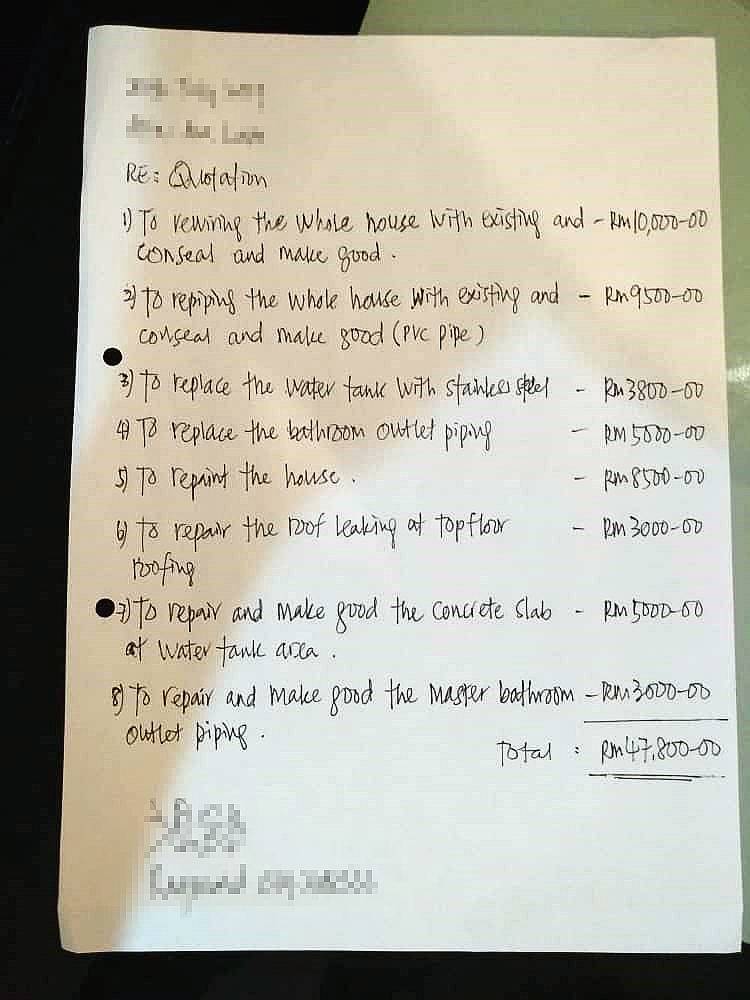 RE: Quotation
1) To rewiring the whole house with existing and - Rm10,000-00
conseal and make good.
2) To repiping the whole house with existing and - Rm9500-00
conseal and make good (PVC pipe)
3) To replace the water tank with stainless steel - Rm3800-00
4) To replace the bathroom outlet piping - Rm5000-00
5) To repaint the house. - Rm8500-00
6) To repair the roof leaking at top floor - Rm3000-00
roofing
7) To repair and make good the concrete slab - Rm5000-00
at water tank area.
8) To repair and make good the master bathroom - Rm3000-00
outlet piping.
Total : Rm47,800-00